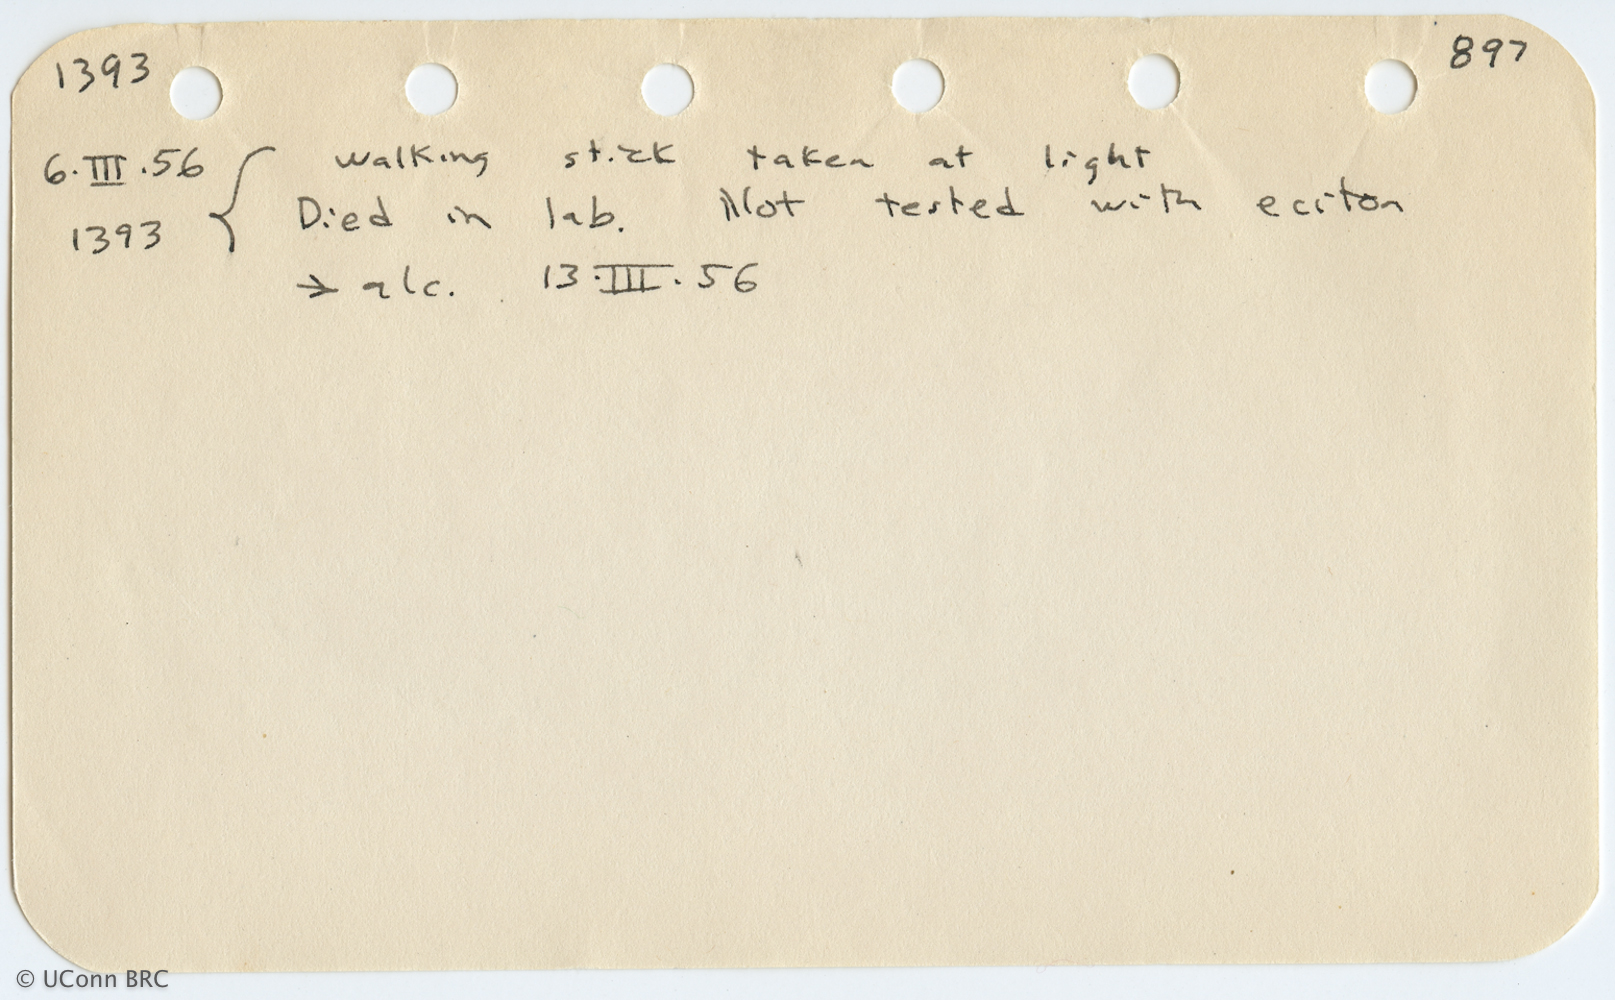 1393 897
6.III.56 { walking stick taken at light
1393 Died in lab. Not tested with eciton
→ alc. 13.III.56
© UConn BRC